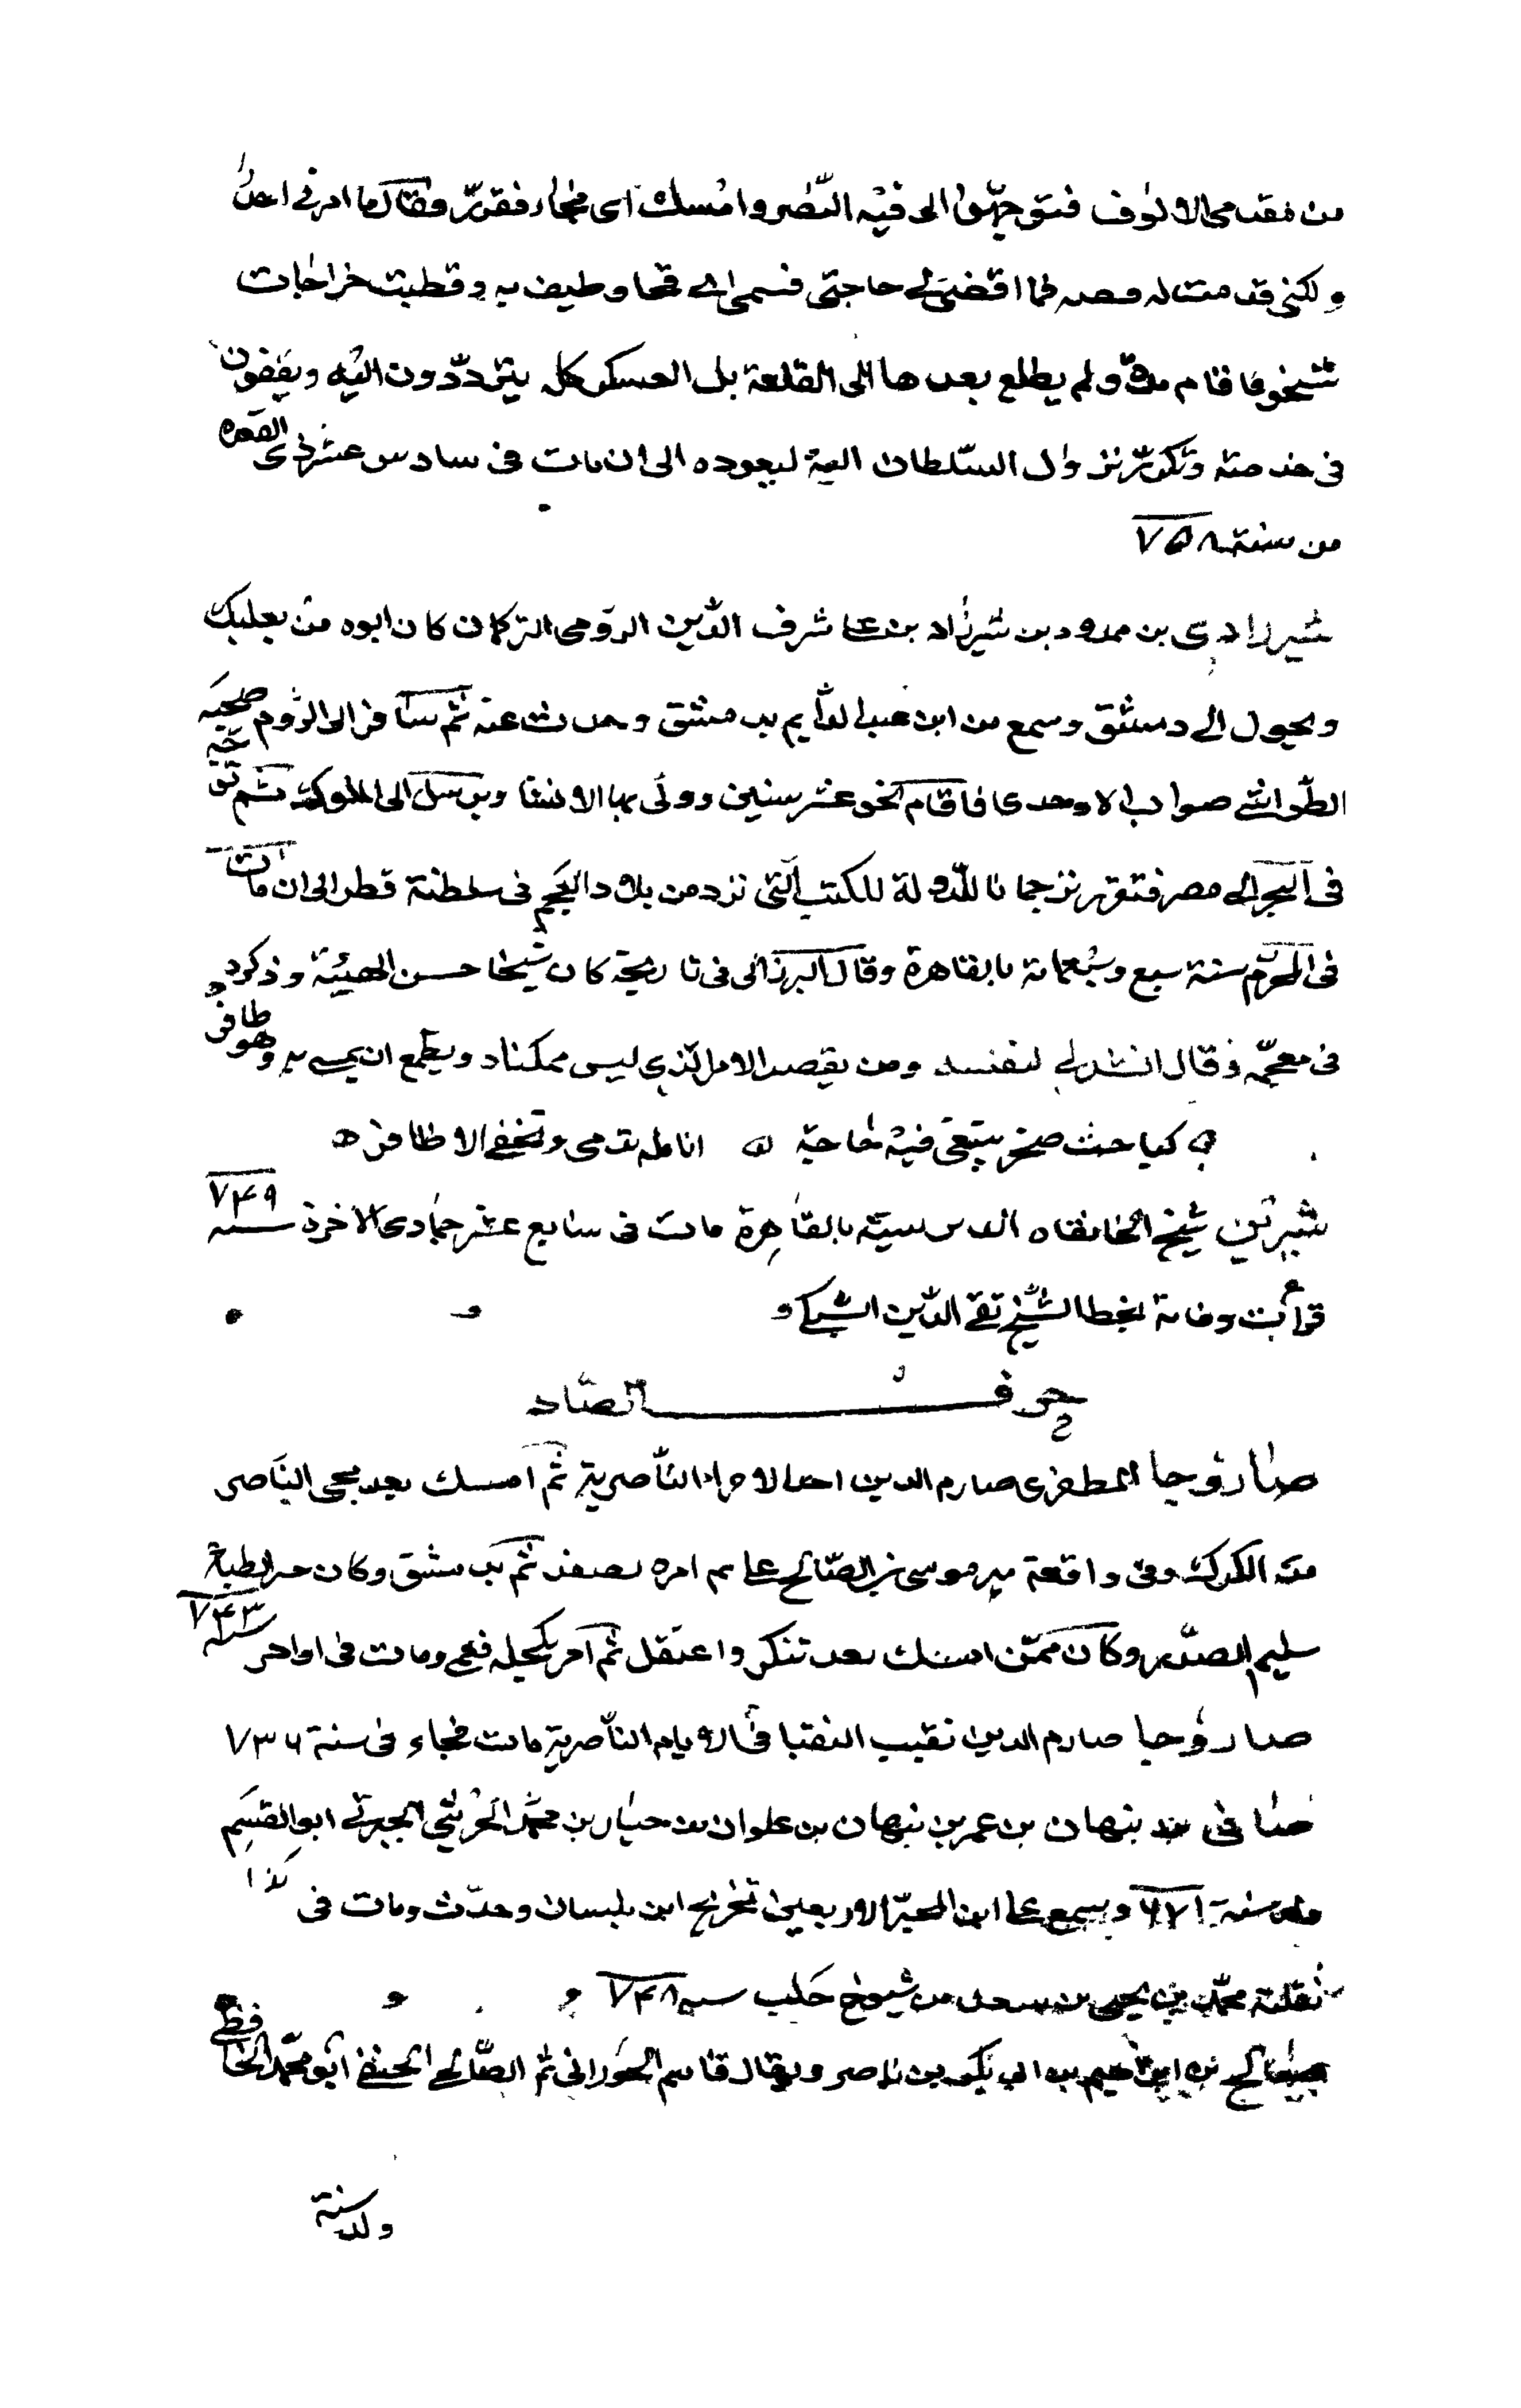 من مقدمي الالوف فتوجهوا الى قبة النصر وامسك اى فجاء فقرر وقال ما امرني احد
ولكني قدمت له قصه لما اقضى لي حاجتي فسمر اى قجا وطيف به وقطبت خراجات
شيخو فاقام مدة ولم يطلع بعدها الى القلعة بل العسكر كل يترددون اليه ويقفون
فى خدمته وتكرر نزول السلطان اليه ليعوده الى ان مات فى سادس عشر ذى القعده
من سنة ٧٥٨
شيرزادى بن ممدود بن شيرزاد بن على شرف الدين الرومى التركمان كان ابوه من بعلبك
وتحول الى دمشق وسمع من ابن عبد الدايم بدمشق وحدث عنه ثم سافر الى الروم صحبه
الطواشى صواب الاوحدى فاقام نحو عشر سنين وولى بها الانشا وترسل الى الملوك ثم توجه
فى البحر الى مصر فتقرر ترجمانا للدولة للكتب التى ترد من بلاد العجم فى سلطنة قطر الى ان مات
فى المحرم سنة سبع وسبعمائة بالقاهرة وقال البرزالى فى تاريخه كان شيخا حسن الهيئة وذكره
فى معجمه وقال انشدني لنفسه ومن يقصد الامر الذي ليس ممكنا ويطمع ان يمسى به وهو ظافر
كباحث صخر يبتغى فيه حاجة انامله تدمى وتحفى الاظافر
شيرين شيخ الخانقاه البيبرسية بالقاهرة مات فى سابع عشر جمادى الاخرة سنه ٧٤٩
قرأت وفاته بخط الشيخ تقى الدين السبكى
حرف الصاد
صاروجا المظفرى صارم الدين احد الامراء الناصرية ثم امسك بعد مجى الناصر
من الكرك وفى واقعة مير موسى بن الصالح على ثم امره بصفد ثم بدمشق وكان حر الطباع
سليم الصدر وكان ممن امسك بعد تنكز واعتقل ثم امر بكحله فعمى ومات فى اواخر سنه ٧٤٣
صاروجا صارم الدين نقيب النقبا فى الايام الناصرية مات فجاء فى سنة ٧٣٦
صافى بن نبهان بن عمر بن نبهان بن علوان بن حبار بن محمد الحريثى الجبرينى ابو القسم
ولد سنة ٦٧١ وسمع على ابن المحبر الاربعين تخريج ابن بلبسان وحدث ومات فى كذا
نقلته محمد بن يحيى بن سعد من شيوخ حلب سنه ٧٤٨
صالح بن ابراهيم بن ابى بكر بن ناصر ويقال قاسم الحورانى ثم الصالحى الحنفى ابو محمد الحافظى
ولد سنة